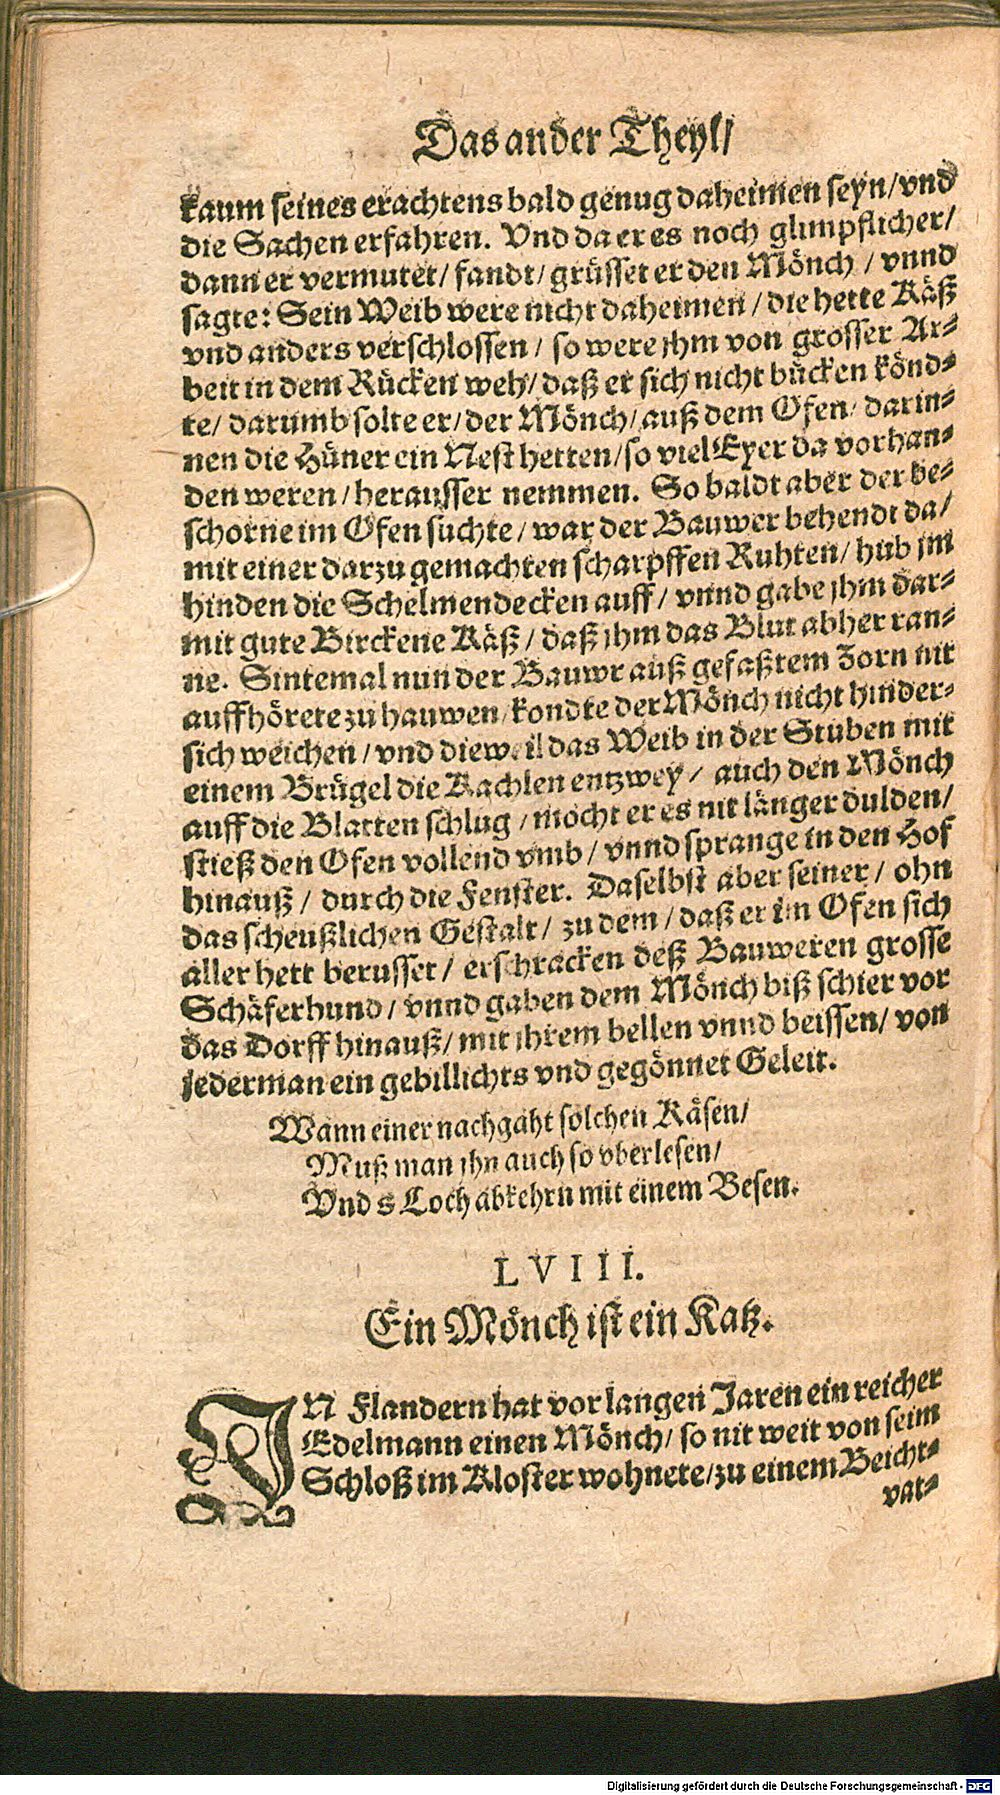 Das ander Theyl/
kaum seines erachtens bald genug daheimen seyn/vnd
die Sachen erfahren. Vnd da er es noch glimpflicher/
dann er vermutet/ fandt/ grüsset er den Mönch / vnnd
sagte: Sein Weib were nicht daheimen / die hette Käß
vnd anders verschlossen / so were jhm von grosser Ar-
beit in dem Rücken weh/ daß er sich nicht bücken könd-
te/ darumb solte er/ der Mönch/ auß dem Ofen/ darin-
nen die Hüner ein Nest hetten/ so viel Eyer da vorhan-
den weren / herausser nemmen. So baldt aber der be-
schorne im Ofen suchte / war der Bauwer behendt da/
mit einer darzu gemachten scharpffen Ruhten/ hub jm
hinden die Schelmendecken auff / vnnd gabe jhm dar-
mit gute Birckene Käß / daß jhm das Blut abher ran-
ne. Sintemal nun der Bauwr auß gefaßtem Zorn nit
auffhörete zu hauwen/ kondte der Mönch nicht hinder-
sich weichen / vnd dieweil das Weib in der Stuben mit
einem Brügel die Kachlen entzwey / auch den Mönch
auff die Blatten schlug / mocht er es nit länger dulden/
stieß den Ofen vollend vmb / vnnd sprange in den Hof
hinauß / durch die Fenster. Daselbst aber seiner / ohn
das scheußlichen Gestalt/ zu dem / daß er im Ofen sich
aller hett berusset / erschracken deß Bauweren grosse
Schäferhund / vnnd gaben dem Mönch biß schier vor
das Dorff hinauß/ mit jhrem bellen vnnd beissen/ von
jederman ein gebillichts vnd gegönnet Geleit.
Wann einer nachgaht solchen Käsen/
Muß man jhn auch so vberlesen/
Vnd s Loch abkehrn mit einem Besen.
LVIII.
Ein Mönch ist ein Katz.
IN Flandern hat vor langen Jaren ein reicher
Edelmann einen Mönch/ so nit weit von seim
Schloß im Kloster wohnete/ zu einem Beicht-
vat-
Digitalisierung gefördert durch die Deutsche Forschungsgemeinschaft - DFG